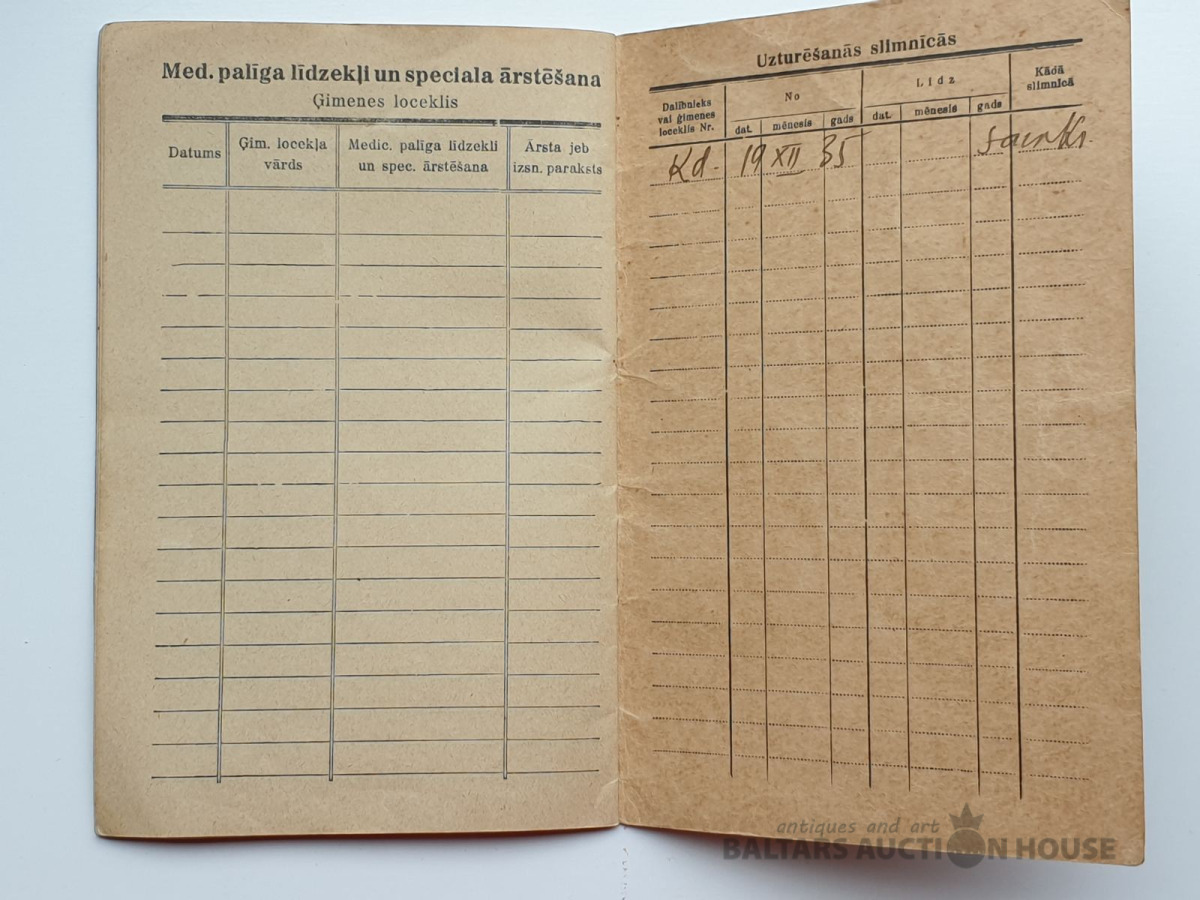 Med. palīga līdzekļi un speciala ārstēšana
Ģimenes loceklis
Datums
Ģim. locekļa
vārds
Medic. palīga līdzekļi
un spec. ārstēšana
Ārsta jeb
izsn. paraksts
Uzturēšanās slimnīcās
Dalībnieks
vai ģimenes
loceklis Nr.
No
Līdz
Kādā
slimnīcā
dat. mēnesis gads dat. mēnesis gads
Kd. 19 XII 35
antiques and art
BALTARS AUCTION HOUSE